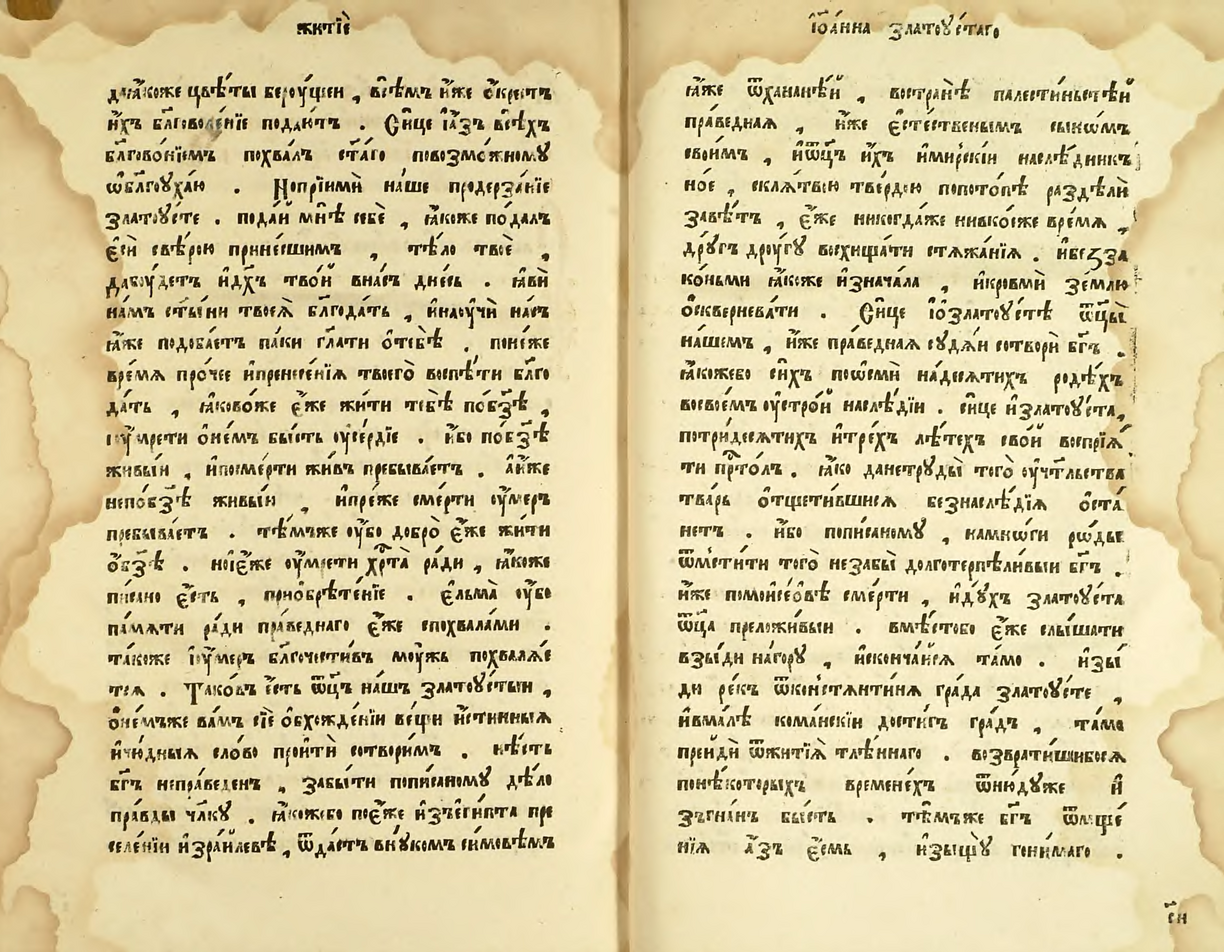 житїѐ
да꙼ꙗ́коже цвѣ́ты беро́ущеи , всѣ́мъ и҆́же ѻ҆́крестъ
и҆́хъ бл҃говоле́нїе подаю́тъ . Си́це і҆а҆́зъ всѣ́хъ
бл҃гово́нїемъ похва́лъ ст҃а́го повозмо́жномꙋ
ѡ҆бл҃гоꙋха́ю . Нопрїимѝ на́ше продерза́нїе
златоꙋ́сте . пода́й мнѣ̀ себѐ , ꙗ҆́коже по́далъ
є҆сѝ свѣ́рою прине́сшимъ , тѣ́ло твоѐ ,
дабо́удетъ и҆дх҃ъ тво́й вна́съ дне́сь . ꙗ҆вѝ
на́мъ ст҃ы́ни твоеѧ̀ бл҃года́ть , и҆наоу́чи на́съ
ꙗ҆́же подоба́етъ па́ки гл҃ати ѻ҆тебѣ̀ . поне́же
вре́мѧ про́чее и҆пренесе́нїѧ твоего̀ воспѣ́ти бл҃го
да́ть , ꙗ҆ково́же є҆́же жи́ти тебѣ̀ побз҃ѣ ,
і҆оу҆мре́ти ѻ҆не́мъ бы́сть оу҆се́рдїе . и҆́бо побз҃ѣ
живы́и , и҆посме́рти жи́въ пребыва́етъ . а҆и҆́же
непобз҃ѣ живы́и , и҆пре́же сме́рти оу҆́меръ
пребыва́етъ . тѣ́мъже оу҆́бо добро̀ є҆́же жи́ти
ѻ҆бз҃ѣ . ної҆є҆́же оу҆мре́ти хр҃та̀ ра́ди , ꙗ҆́коже
пи́сано є҆́сть , приѡбрѣ́тенїе . є҆льма̀ оу҆́бо
па́мѧти ра́ди пра́веднаго є҆́же спохвала́ми .
та́коже і҆оу҆́меръ бл҃гочести́въ мо́ужъ похвалѧ́е
тсѧ . Тако́въ є҆́сть ѿц҃ъ на́шъ златоꙋ́стыи ,
ѻ҆не́мъже ва́мъ сїѐ ѻ҆бхожде́нїи ве́щи и҆́стинныѧ
и҆чю́дныѧ сло́во пройтѝ сотвори́мъ . нѣ́сть
бг҃ъ непра́веденъ , забы́ти попи́саномꙋ дѣ́ло
пра́вды чл҃кꙋ . ꙗ҆́кожебо пое҆́же и҆зъеги́пта пре
селе́нїи и҆зра́илевѣ , ѿда́стъ внꙋ́комъ си́мовѣмъ
і҆ѡа́нна златоꙋ́стаго
ꙗ҆́же ѿханане́й , востранѣ̀ палести́ньстѣй
пра́веднаѧ , и҆́же є҆сте́ственымъ сынѡ́мъ
свои́мъ , и҆ѿц҃ъ и҆́хъ и҆мирскі́и наслѣ́дникъ
но́е , склѧ́твою тве́рдою попото́пѣ раздѣлѝ
завѣ́тъ , є҆́же никогда́же нивко́еже вре́мѧ ,
дрꙋ́гъ дроу́гꙋ восхища́ти стѧжа́нїѧ . и҆безза
ко́ньми ꙗ҆́коже и҆знача́ла , и҆кровмѝ зе́млю
ѻ҆сквернева́ти . Си́це і҆ѻ҆златоꙋ́стѣ ѿц҃ы̀
на́шемъ , и҆́же пра́веднаѧ сꙋдѧ́и сотворѝ бг҃ъ .
ꙗ҆́кожебо си́хъ поѡсмѝ на́десѧтихъ родѣ́хъ
восвое́мъ оу҆стро́й наслѣ́дїи . си́це и҆златоꙋ́ста,
потри́десѧтихъ и҆тре́хъ лѣ́тѣхъ сво́й воспрїѧ́
ти пр҃то́лъ . ꙗ҆́ко данетрꙋды̀ того̀ оу҆чт҃льства
тва́рь ѻ҆тщети́вшисѧ безнаслѣ́дїѧ ѻ҆ста́
нетъ . и҆́бо попи́саномꙋ , намнѡ́ги рѡ́ды
ѿмсти́ти того̀ незабы̀ долготерпѣли́выи бг҃ъ .
и҆́же помоисе́овѣ сме́рти , и҆дꙋ́хъ златоꙋ́ста
ѿц҃а преложи́выи . вмѣ́стобо є҆́же слы́шати
взы́ди нагорꙋ̀ , и҆сконча́йсѧ та́мо . и҆зы́
ди ре́къ ѿконстѧнти́нѧ гра́да златоꙋ́сте ,
и҆вма́лѣ кома́нскїи дости́гъ гра́дъ , та́мо
прейдѝ ѿжитїѧ̀ тлѣ́ннаго . возврати́вшибосѧ
понѣ́которыхъ вре́менехъ ѿню́дꙋже и҆
зъгна́нъ бы́сть . тѣ́мъже бг҃ъ ѿмще́
нїѧ а҆́зъ є҆́смь , и҆зыщꙋ̀ гони́маго .
с҃и